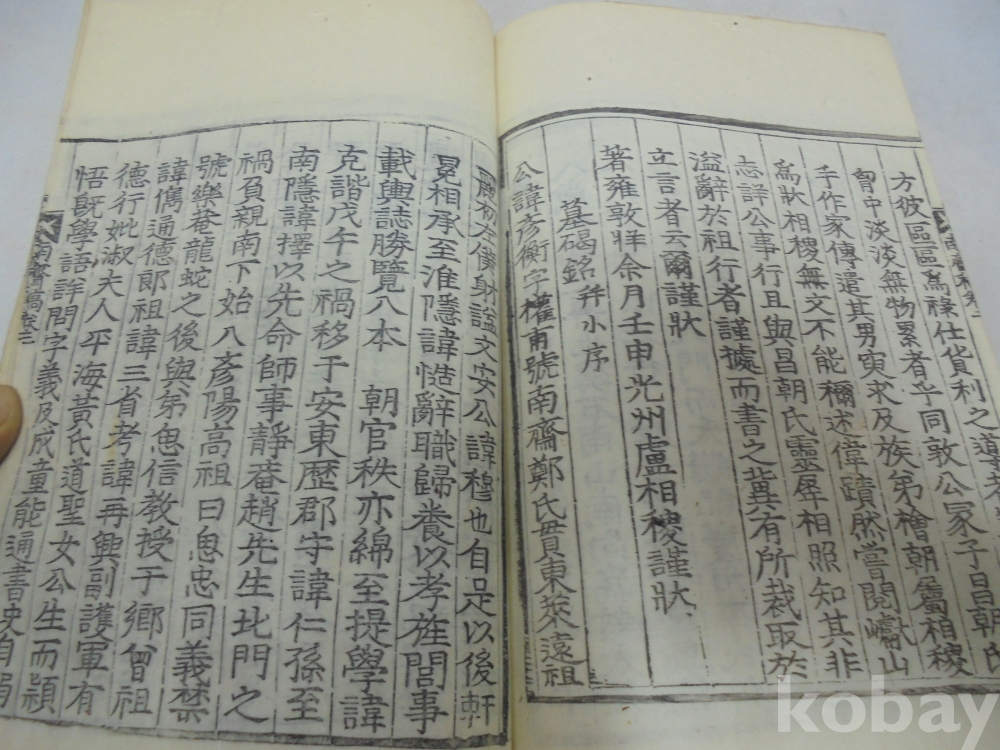 方彼區區爲祿仕貨利之
曾中淡淡無物累者乎同敦公冢子昌朝氏
手作家傳遣其男寅求及族弟檜朝屬相稷
爲狀相稷無文不能穪述偉蹟然嘗閱巘山
志詳公事行且與昌朝氏靈犀相照知其非
溢辭於祖行者謹據而書之冀有所裁取於
立言者云爾謹狀
著雍敦牂余月壬申光州盧相稷謹狀
墓碣銘幷小序
公諱彦衡字權甫號南齋鄭氏貫東萊遠祖
麗初左僕射諡文安公諱穆也自是以後軒
冕相承至淮隱諱悎辭職歸養以孝旌閭事
載輿誌勝覽八本 朝官秩亦綿至提學諱
克諧戊午之禍移于安東歷郡守諱仁孫至
南隱諱擇以先命師事靜菴趙先生北門之
禍負親南下始八彦陽高祖曰思忠同義禁
號樂菴龍蛇之後與弟思信敎授于鄉曾祖
諱儁通德郎祖諱三省考諱再興副護軍有
德行妣淑夫人平海黃氏道聖女公生而穎
悟旣學語詳問字義及成童能通書史自
南齋稿卷三
kobay